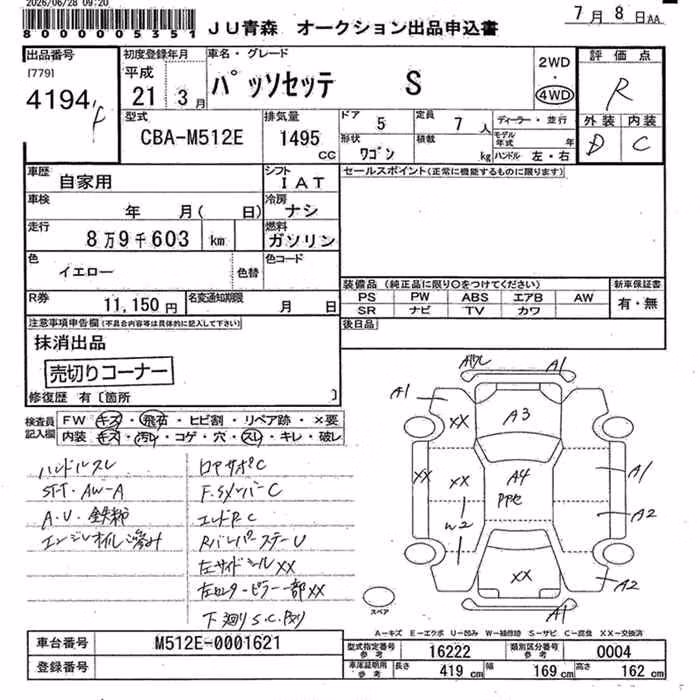 2026/06/28 09:20
8000005351
JU青森 オークション出品申込書
7月8日AA
出品番号
[779]
4194
初度登録年月
平成
21 3月
車名・グレード
パッソセッテ S
2WD
・
4WD
評価点
R
外装 内装
D C
型式
CBA-M512E
排気量
1495
CC
ドア
5
定員
7人
形状
ワゴン
積載
kg
ディーラー・並行
モデル年式 年
ハンドル 左・右
車歴
自家用
シフト
IAT
車検
年 月( 日)
冷房
ナシ
走行
8万9千603 km
燃料
ガソリン
色
イエロー
色替
色コード
R券
11,150円
名変通知期限
月 日
セールスポイント(正常に機能するものに限ります)
装備品(純正品に限り○をつけてください)
新車保証書
PS PW ABS エアB AW
有・無
SR ナビ TV カワ
後日品
注意事項申告欄(不具合内容等は具体的に記入して下さい)
抹消出品
売切りコーナー
修復歴 有〔箇所 〕
検査員記入欄
FW キズ・飛石・ヒビ割・リペア跡・×要
内装 キズ・汚レ・コゲ・穴・スレ・キレ・破レ
ハンドルスレ
ST.T・AW-A
A.U・鉄粉
エンジンオイル滲み
ロアサポC
F.SメンバーC
エンドRC
RバンパーステーU
左サイドシルXX
左センターピラー一部XX
下廻りS.C.
A1
A1
XX
A3
XX
XX
A4
A1
W2
A2
XX
A2
A1
スペア
A-キズ E-エクボ U-凹み W-補修跡 S-サビ C-腐食 XX-交換済
車台番号
M512E-0001621
登録番号
型式指定番号 参考
16222
類別区分番号 参考
0004
車庫証明用 参考
長さ 419 cm
幅 169 cm
高さ 162 cm